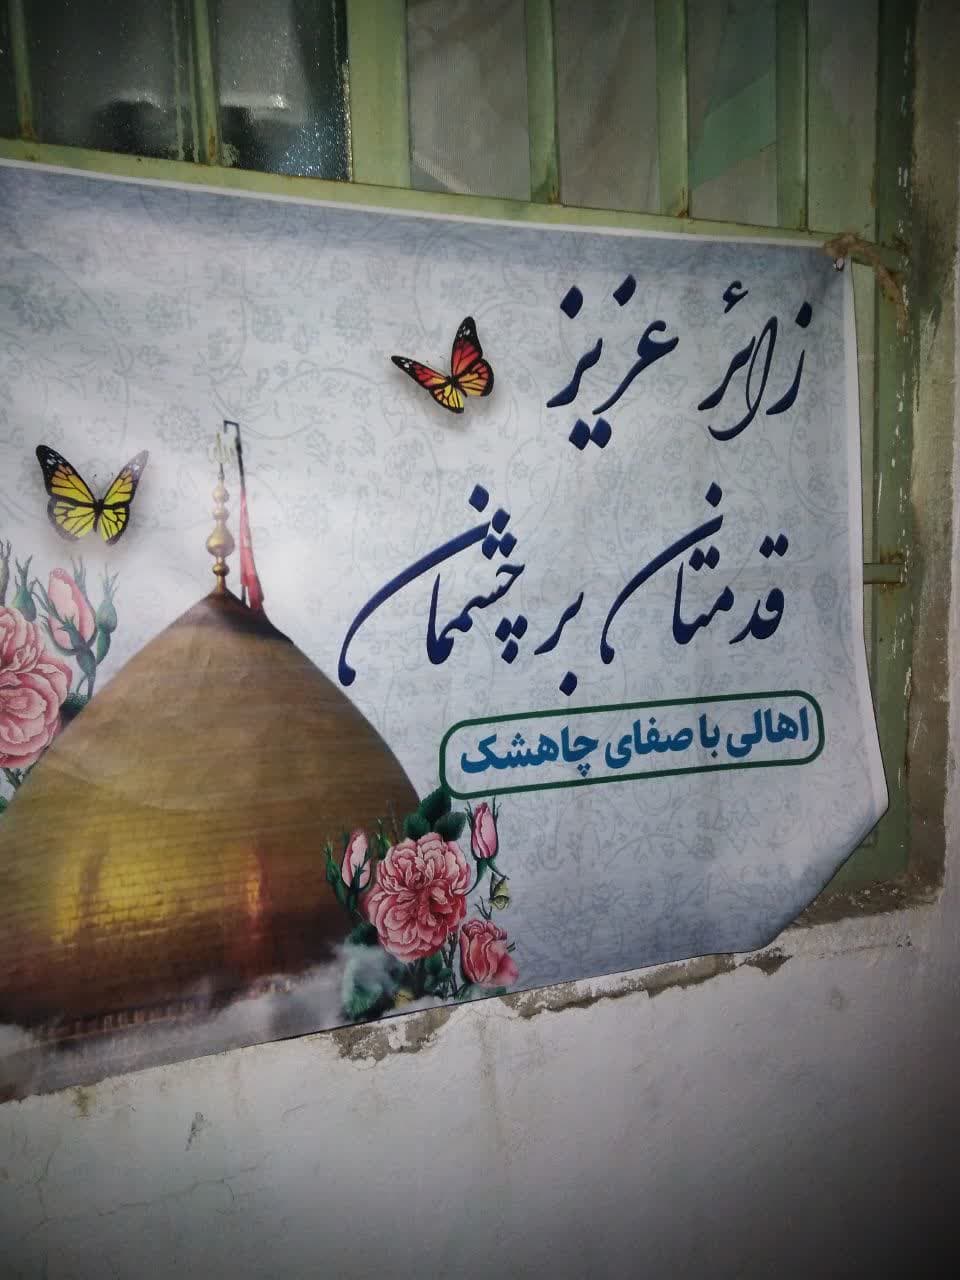 زائر عزیز
قدمتان بر چشممان
اهالی با صفای چاهشک